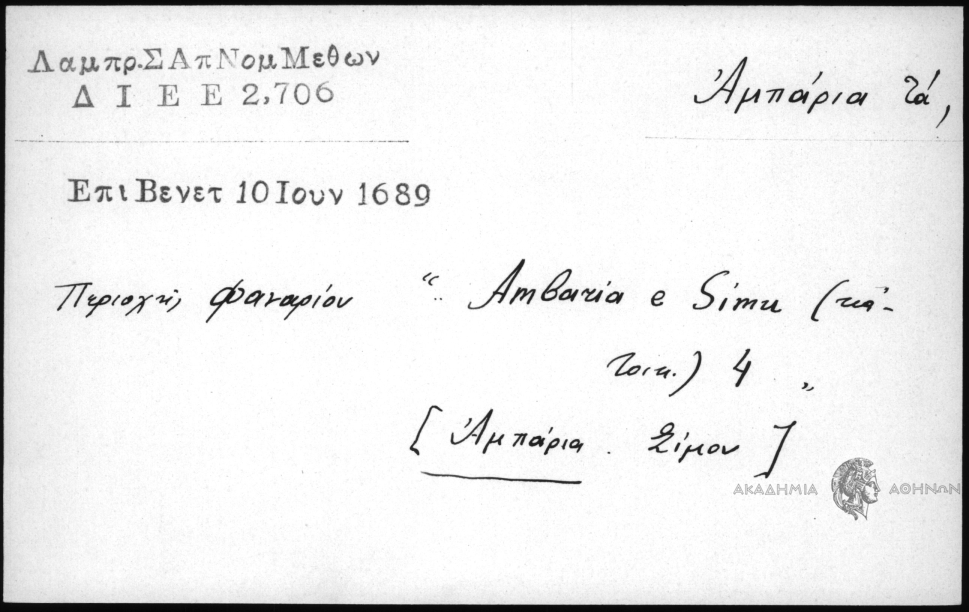 Λαμπρ.ΣΑπΝομΜεθων
Δ Ι Ε Ε 2,706
Ἀμπάρια τά,
ΕπιΒενετ 10Ιουν 1689
Περιοχὴ Φαναρίου " Ambaria e Simu (κά-
τοικ.) 4 "
[ Ἀμπάρια . Σίμου ]
ΑΚΑΔΗΜΙΑ ΑΘΗΝΩΝ